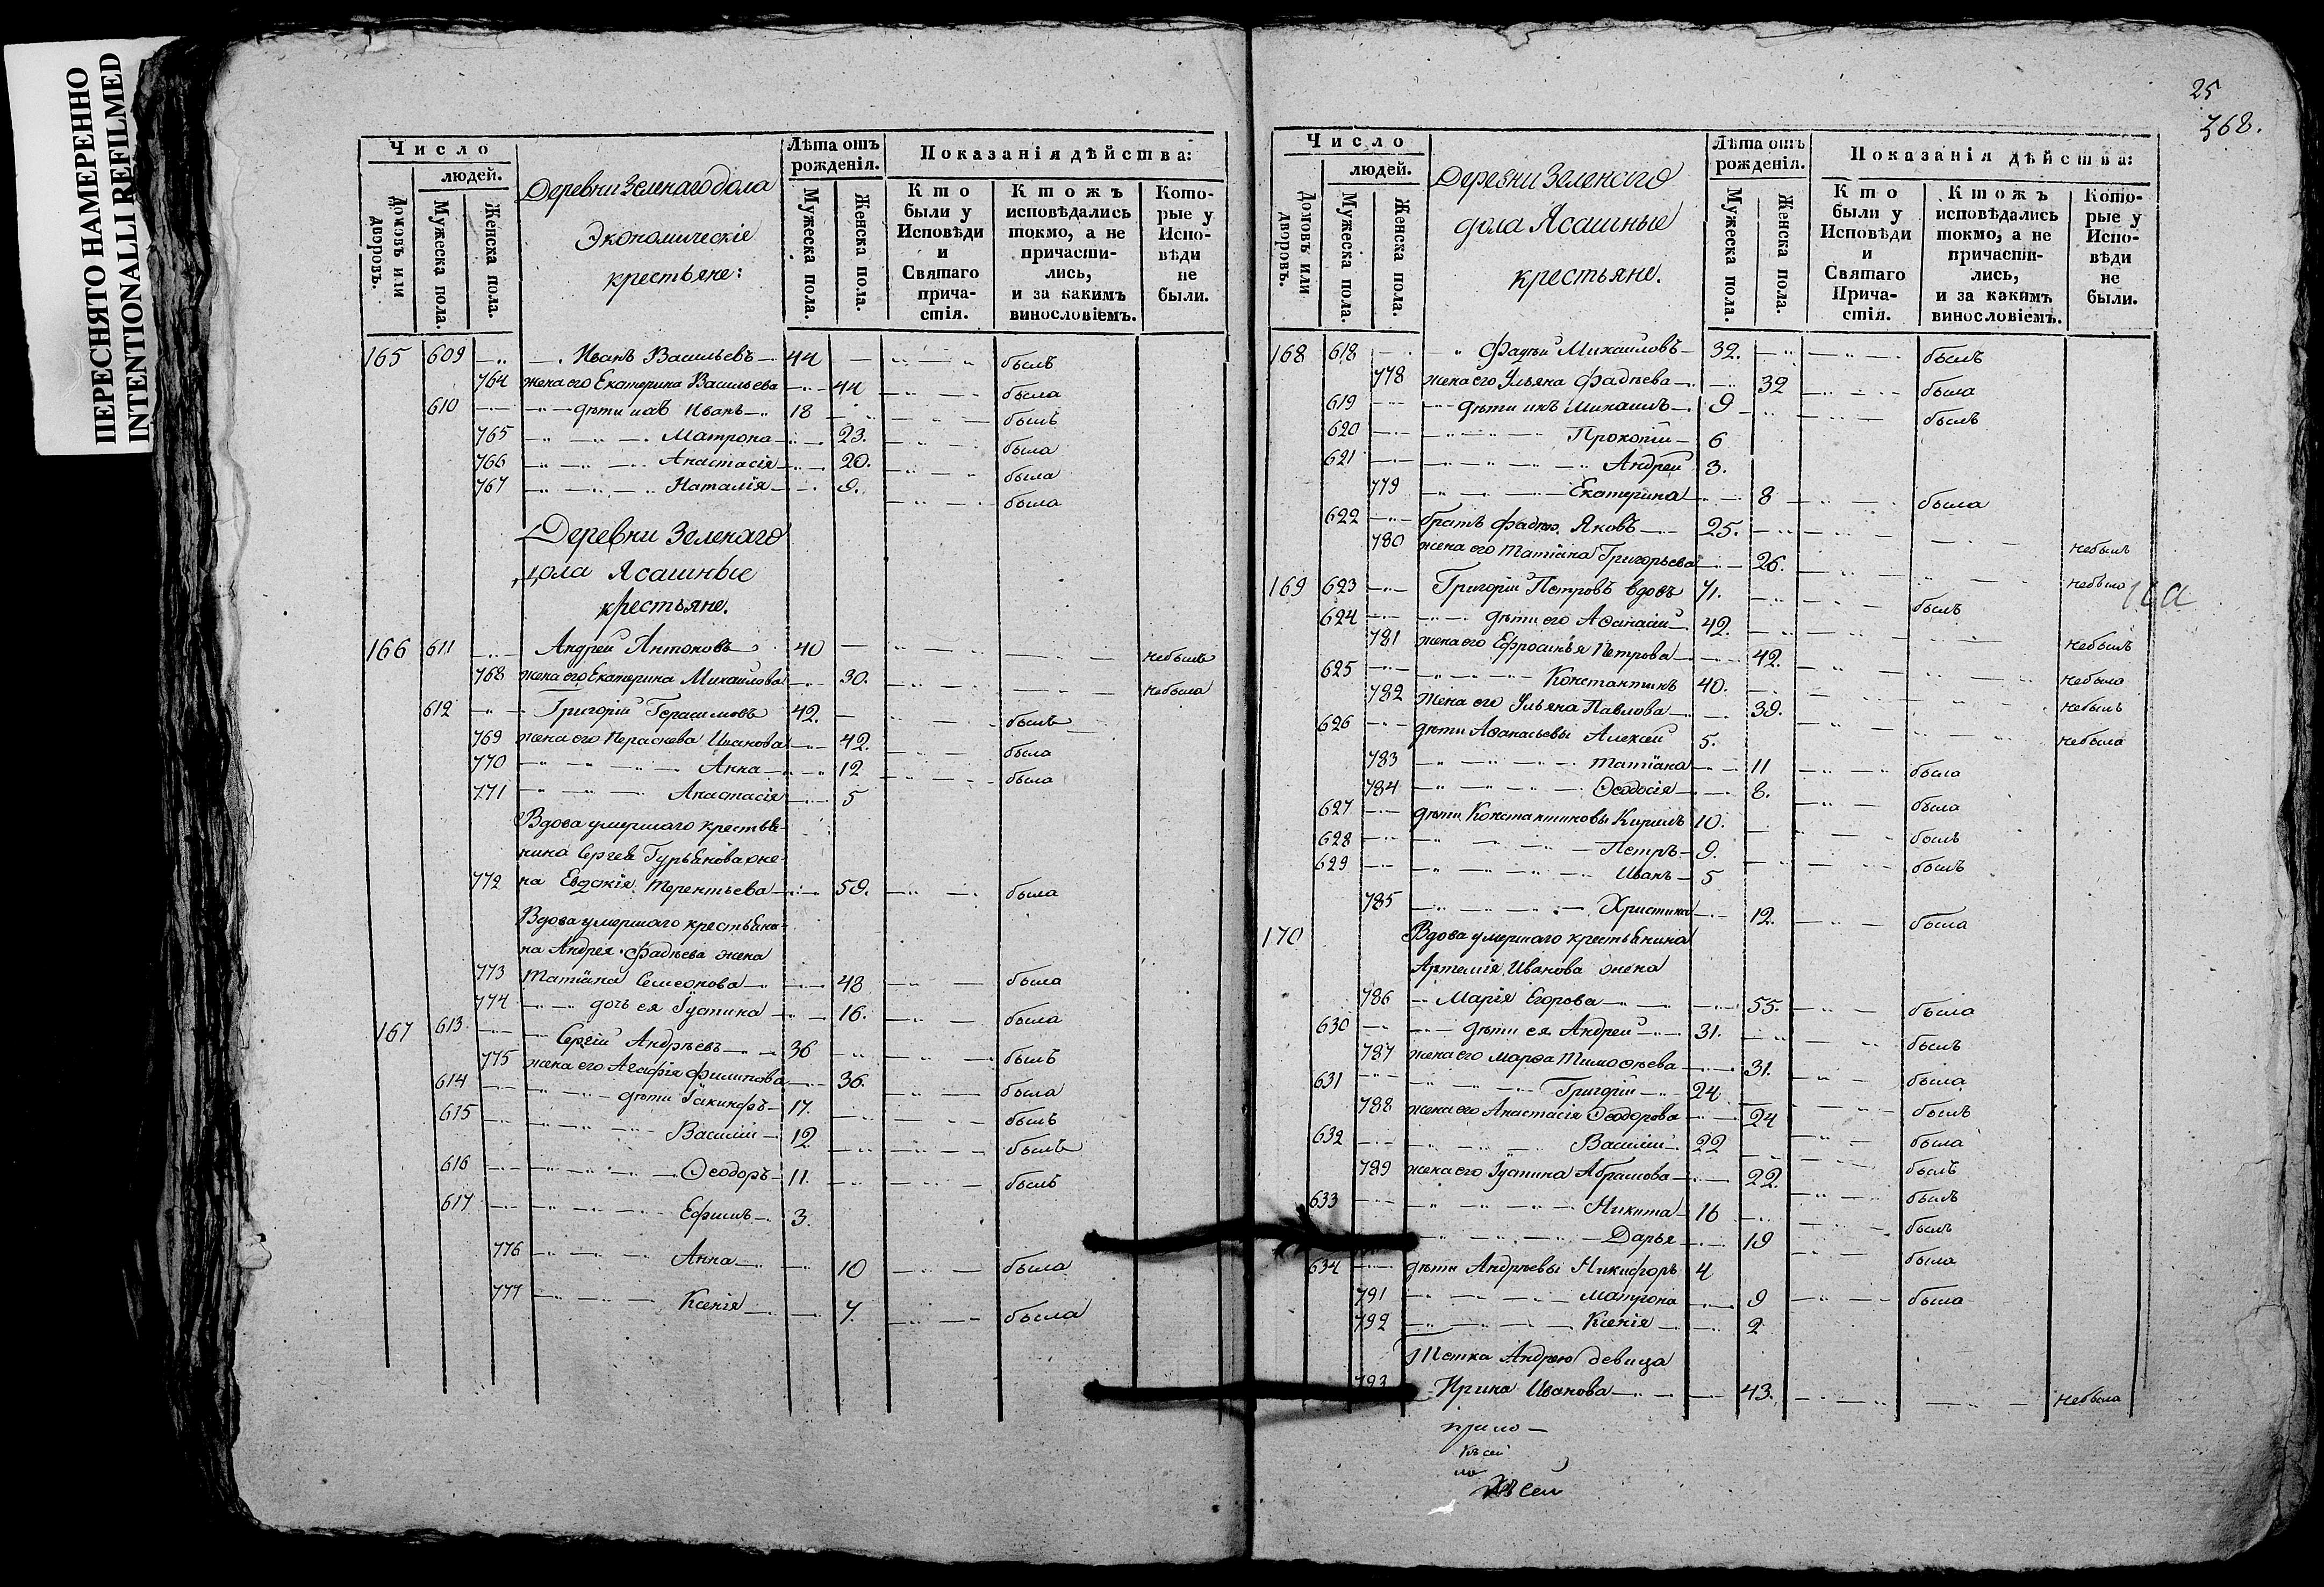 ПЕРЕСНЯТО НАМЕРЕННО
INTENTIONALLI REFILMED
Число
людей.
Домовъ или дворовъ.
Мужеска пола.
Женска пола.
Деревни Зеленаго дола
Экономическіе
крестьяне:
Лѣта отъ рожденія.
Мужеска пола.
Женска пола.
Показанія дѣйства:
Кто были у Исповѣди и Святаго прича-стія.
Ктожъ исповѣдались токмо, а не причасти-лись, и за какимъ винословіемъ.
Кото-рые у Испо-вѣди не были.
165 609 Иванъ Васильевъ 44 былъ
764 жена его Екатерина Васильева 44 была
610 дѣти ихъ Иванъ 18 былъ
765 Матрона 23. была
766 Анастасія 20. была
767 Наталія 9. была
Деревни Зеленаго
дола Ясашные
крестьяне.
166 611 Андрей Антоновъ 40 небылъ
768 жена его Екатерина Михайлова 30. небыла
612 Григорій Герасимовъ 42. былъ
769 жена его Параскева Иванова 42. была
770 Анна 12 была
771 Анастасія 5
Вдова умершаго крестья-
нина Сергея Гурьянова же-
772 на Евдокія Терентьева 59. была
Вдова умершаго крестьяни-
на Андрея Фадѣева жена
773 Татіана Семеонова 48 была
774 дочь ея Іустина 16. была
167 613 Сергій Андрѣевъ 36 былъ
775 жена его Агафія Филипова 36. была
614 дѣти Іакинфъ 17. былъ
615 Василій 12 былъ
616 Ѳеодоръ 11. былъ
617 Ефимъ 3.
776 Анна 10 была
777 Ксенія 7. была
25
368.
Число
людей.
Домовъ или дворовъ.
Мужеска пола.
Женска пола.
Деревни Зеленаго
дола Ясашные
крестьяне.
Лѣта отъ рожденія.
Мужеска пола.
Женска пола.
Показанія дѣйства:
Кто были у Исповѣди и Святаго Прича-стія.
Ктожъ исповѣдались токмо, а не причасти-лись, и за какимъ винословіемъ.
Кото-рые у Испо-вѣди не были.
168 618 Фадѣй Михайловъ 32. былъ
778 жена его Ульяна Фадѣева 32 была
619 дѣти ихъ Михаилъ 9 былъ
620 Прокопій 6
621 Андрей 3.
779 Екатерина 8 была
622 братъ Фадѣю Яковъ 25. небылъ
780 жена его Татіана Григорьева 26. небыла
169 623 Григорій Петровъ вдовъ 71. былъ
624 дѣти его Аѳанасій 42. небылъ
781 жена его Ефросинья Петрова 42. небыла
625 Константинъ 40. небылъ
782 Жена его Ульяна Павлова 39. небыла
626 дѣти Аѳанасьевы Алексей 5.
783 Татіана 11 была
784 Ѳеодосія 8. была
627 дѣти Константиновы Кирилъ 10. былъ
628 Петръ 9. былъ
629 Иванъ 5
785 Христина 12. была
170 Вдова умершаго крестьянина
Артемія Иванова жена
786 Марія Егорова 55. была
630 дѣти ея Андрей 31. былъ
787 жена его Марѳа Тимоѳѣева 31. была
631 Григорій 24 былъ
788 жена его Анастасія Ѳеодорова 24 была
632 Василій 22 былъ
789 жена его Іустина Абрамова 22. былъ
633 Никита 16 былъ
Дарья 19 была
634 дѣти Андрѣевы Никифоръ 4
791 Матрона 9 была
792 Ксенія 2
Тетка Андрею девица
793 Ирина Иванова 43. небыла
Къ сей
Къ сей